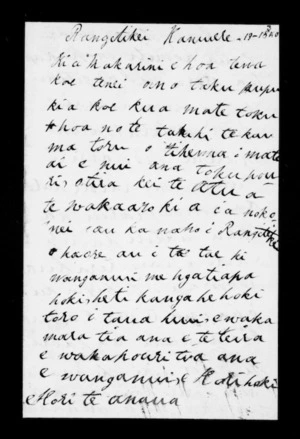 Rangitikei Hanuere - 19 - 1870
Kia Makarini e hoa tena
koe tenei ano taku kupu
kia koe kua mate toku
hoa no te takihi te kau
ma toru o tihema i mate
ai e nui ana toku pou
ri, otira kei te Atua
te wakaaro ki a ia noko
nei au ka noho i Rangitikei
haere au i te tae ki
wanganui me ngatiapa
hoki, heti kanga he hoki
toro i taua hui, e waka
mara tia ana e te tira
e wakapouri tia ana
e wanganui, e Hori hoki
Hori te anaua